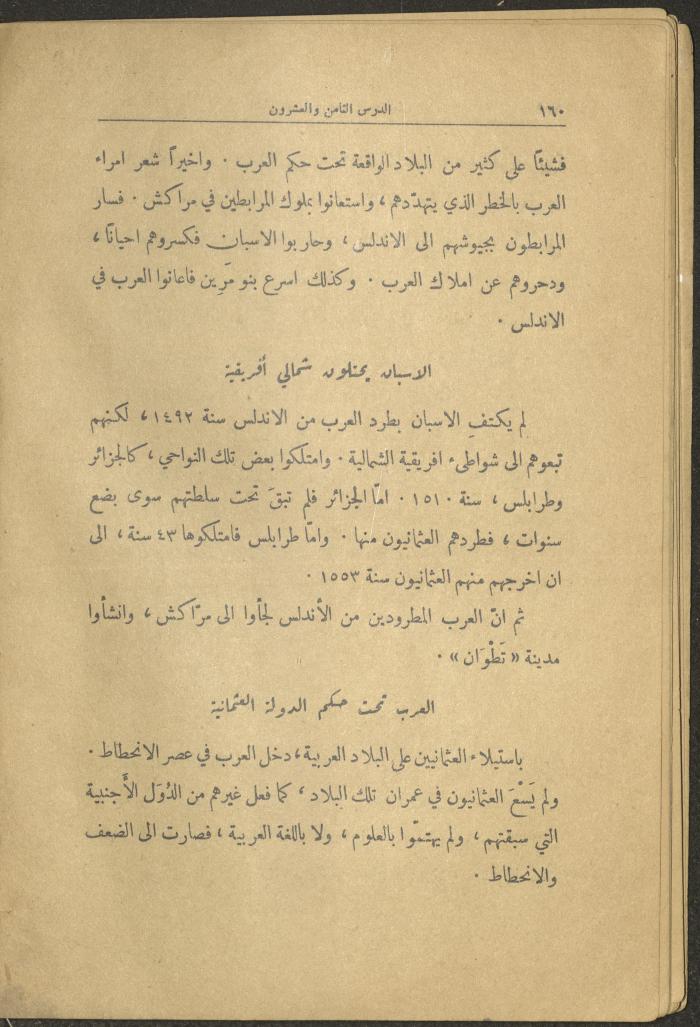 ١٦٠
الدرس الثامن والعشرون
فشيئًا على كثير من البلاد الواقعة تحت حكم العرب . واخيراً شعر امراء
العرب بالخطر الذي يتهدّدهم ، واستعانوا بملوك المرابطين في مراكش . فسار
المرابطون بجيوشهم الى الاندلس ، وحاربوا الاسبان فكسروهم احيانًا ،
ودحروهم عن املاك العرب . وكذلك اسرع بنو مَرِين فاعانوا العرب في
الاندلس .
الاسبان يحتلون شمالي أفريقية
لم يكتفِ الاسبان بطرد العرب من الاندلس سنة ١٤٩٢ ، لكنهم
تبعوهم الى شواطىء افريقية الشمالية . وامتلكوا بعض تلك النواحي ، كالجزائر
وطرابلس ، سنة ١٥١٠ . امّا الجزائر فلم تبقَ تحت سلطتهم سوى بضع
سنوات ، فطردهم العثمانيون منها . وامّا طرابلس فامتلكوها ٤٣ سنة ، الى
ان اخرجهم منهم العثمانيون سنة ١٥٥٣ .
ثم انّ العرب المطرودين من الأندلس لجأوا الى مرّاكش ، وانشأوا
مدينة « تَطْوَان » .
العرب تحت حكم الدولة العثمانية
باستيلاء العثمانيين على البلاد العربية ، دخل العرب في عصر الانحطاط .
ولم يَسْعَ العثمانيون في عمران تلك البلاد ، كما فعل غيرهم من الدُوَل الأَجنبية
التي سبقتهم ، ولم يهتمّوا بالعلوم ، ولا باللغة العربية ، فصارت الى الضعف
والانحطاط .